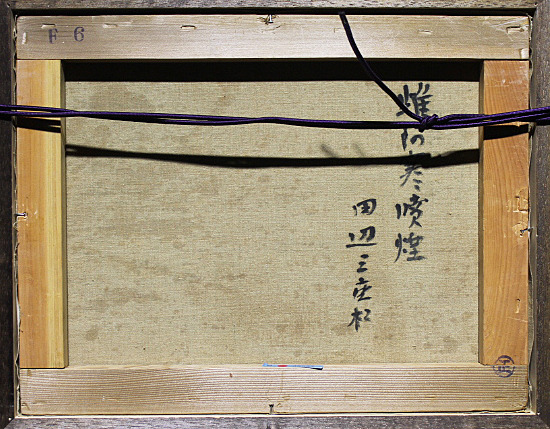 F 6
雌阿寒噴煙
田辺三重松